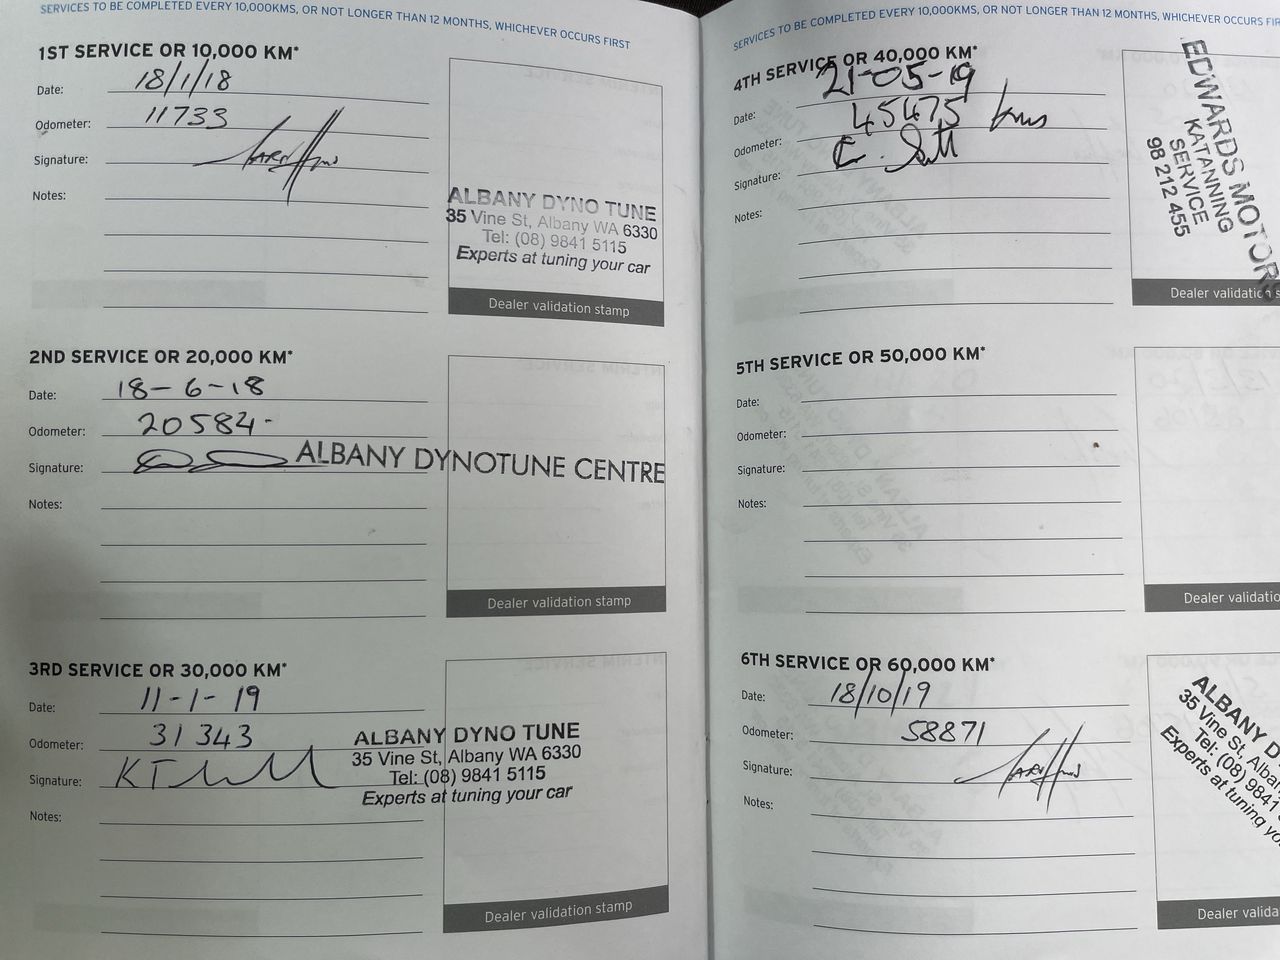 SERVICES TO BE COMPLETED EVERY 10,000KMS, OR NOT LONGER THAN 12 MONTHS, WHICHEVER OCCURS FIRST
1ST SERVICE OR 10,000 KM*
Date: 18/1/18
Odometer: 11733
Signature:
Notes:
ALBANY DYNO TUNE
35 Vine St, Albany WA 6330
Tel: (08) 9841 5115
Experts at tuning your car
Dealer validation stamp
2ND SERVICE OR 20,000 KM*
Date: 18-6-18
Odometer: 20584-
Signature:
ALBANY DYNOTUNE CENTRE
Notes:
Dealer validation stamp
3RD SERVICE OR 30,000 KM*
Date: 11-1-19
Odometer: 31343
Signature:
Notes:
ALBANY DYNO TUNE
35 Vine St, Albany WA 6330
Tel: (08) 9841 5115
Experts at tuning your car
Dealer validation stamp
SERVICES TO BE COMPLETED EVERY 10,000KMS, OR NOT LONGER THAN 12 MONTHS, WHICHEVER OCCURS FIR
4TH SERVICE OR 40,000 KM*
Date: 21-05-19
Odometer: 45475 kms
Signature:
Notes:
EDWARDS MOTORS
KATANNING
SERVICE
98 212 455
Dealer validation s
5TH SERVICE OR 50,000 KM*
Date:
Odometer:
Signature:
Notes:
Dealer validatio
6TH SERVICE OR 60,000 KM*
Date: 18/10/19
Odometer: 58871
Signature:
Notes:
ALBANY D
35 Vine St, Alba
Tel: (08) 9841
Experts at tuning yo
Dealer valida